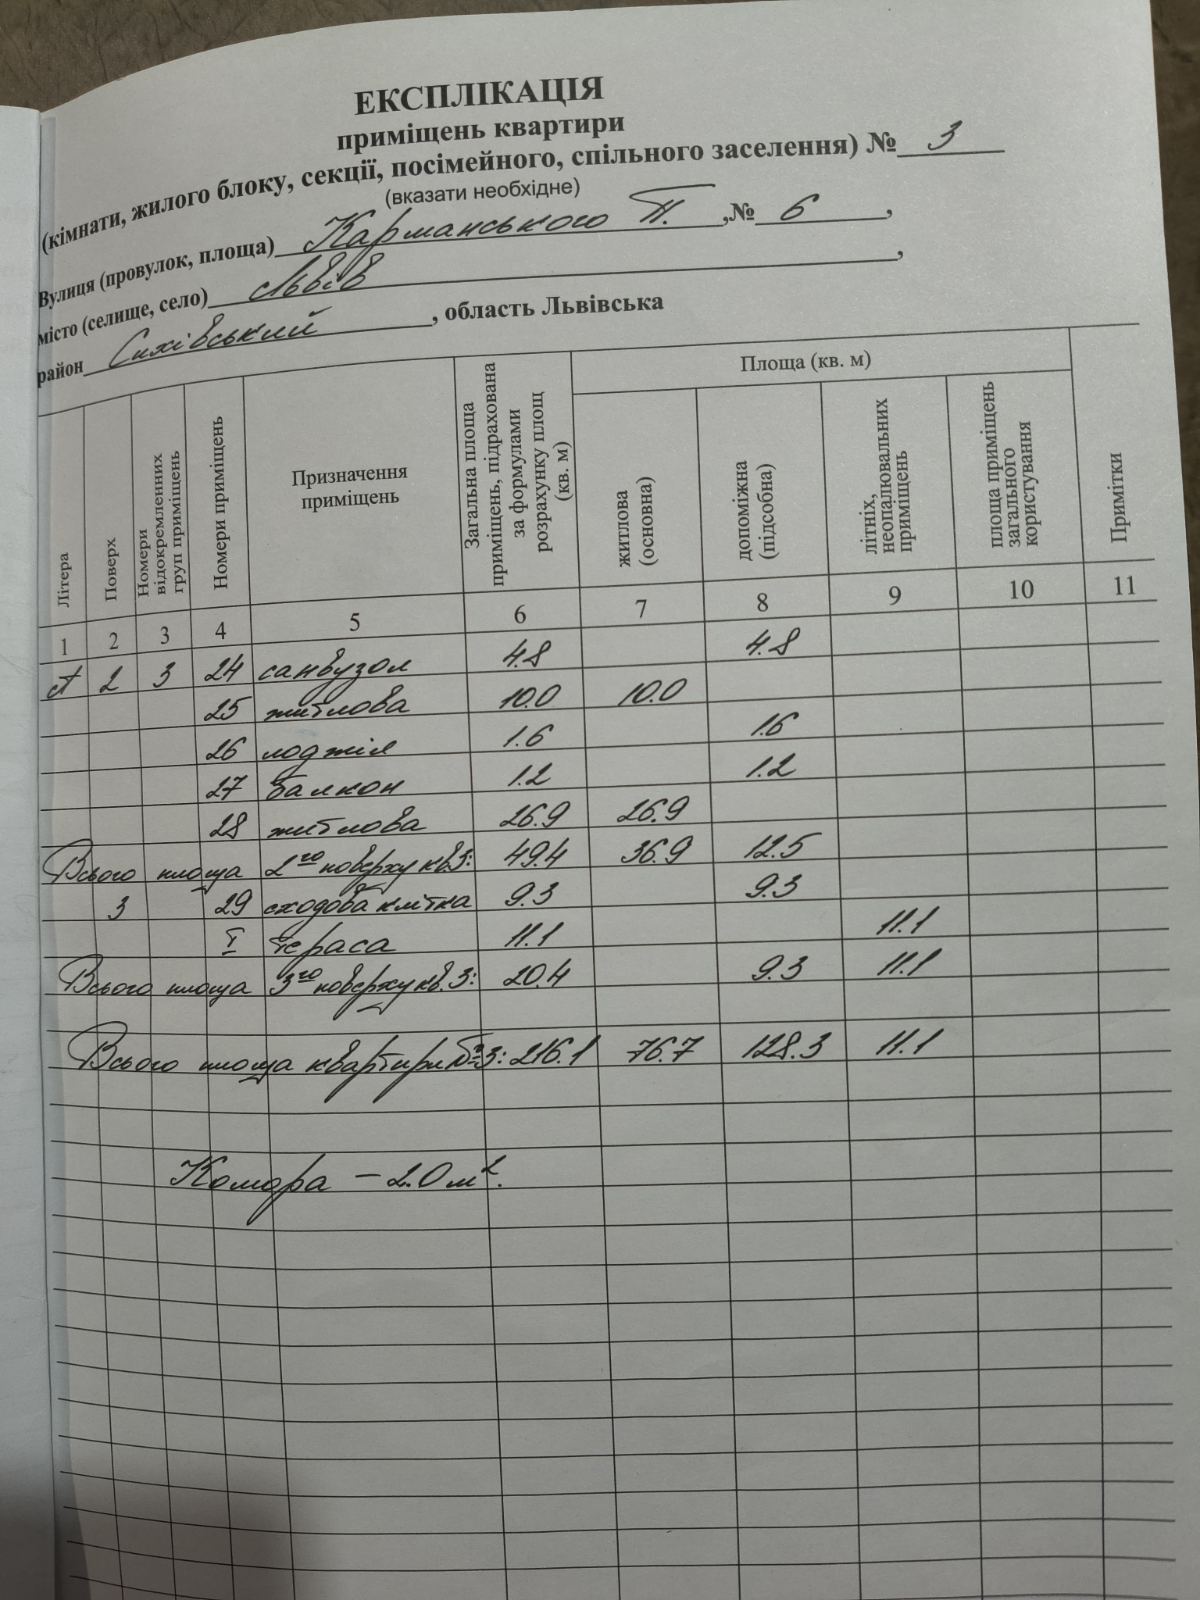 ЕКСПЛІКАЦІЯ
приміщень квартири
(кімнати, жилого блоку, секції, посімейного, спільного заселення) № 3
(вказати необхідне)
Вулиця (провулок, площа) Карманського П. ,№ 6 ,
місто (селище, село) Львів ,
район Сихівський , область Львівська
Літера Поверх Номери відокремленних груп приміщень Номери приміщень Призначення приміщень Загальна площа приміщень, підрахована за формулами розрахунку площ (кв. м) Площа (кв. м) житлова (основна) допоміжна (підсобна) літніх, неопалювальних приміщень площа приміщень загального користування Примітки
1 2 3 4 5 6 7 8 9 10 11
А 2 3 24 санвузол 4.8 4.8
25 житлова 10.0 10.0
26 лоджія 1.6 1.6
27 балкон 1.2 1.2
28 житлова 26.9 26.9
Всього площа 2го поверху кв.3: 49.4 36.9 12.5
3 29 сходова клітка 9.3 9.3
I тераса 11.1 11.1
Всього площа 3го поверху кв.3: 20.4 9.3 11.1
Всього площа квартири №3: 216.1 76.7 128.3 11.1
Комора – 2.0 м².